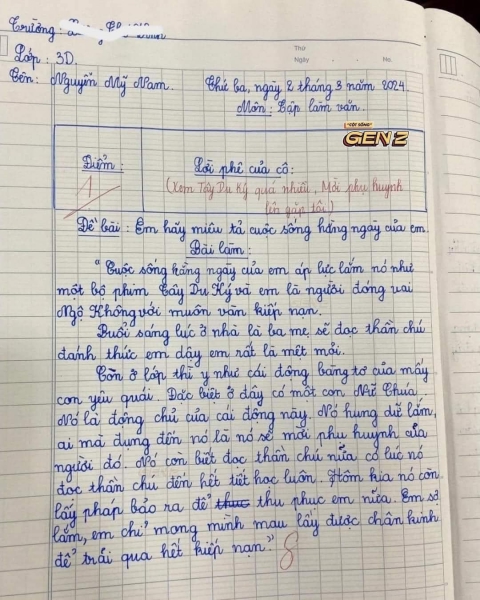 Trường :
Thứ
Lớp : 3D.
Ngày . . No.
Tên: Nguyễn Mỹ Nam.
Thứ ba, ngày 2 tháng 3 năm 2024.
Môn : Tập làm văn.
"CỘT SỐNG"
GEN Z
Điểm :
1
Lời phê của cô:
(Xem Tây Du Ký quá nhiều, Mời phụ huynh
lên gặp tôi)
Đề bài : Em hãy miêu tả cuộc sống hằng ngày của em.
Bài làm :
"Cuộc sống hằng ngày của em áp lực lắm nó như
một bộ phim Tây Du Ký và em là người đóng vai
Ngộ Không với muôn vàn kiếp nạn.
Buổi sáng lúc ở nhà là ba mẹ sẽ đọc thần chú
đánh thức em dậy em rất là mệt mỏi.
Còn ở lớp thì y như cái động bàng tơ của mấy
con yêu quái. Đặc biệt ở đây có một con Nữ Chúa
Nó là động chủ của cái động này. Nó hung dữ lắm,
ai mà đụng đến nó là nó sẽ mời phụ huynh của
người đó. Nó còn biết đọc thần chú nữa có lúc nó
đọc thần chú đến hết tiết học luôn. Hôm kia nó còn
lấy pháp bảo ra để thuc thu phục em nữa. Em sợ
lắm, em chỉ mong mình mau lấy được chân kinh
để trải qua hết kiếp nạn."